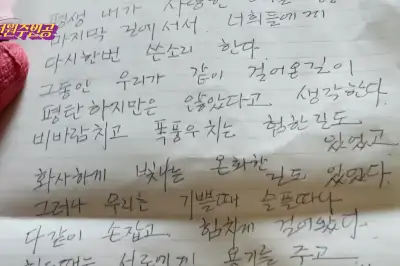 평생 내가 사랑한
마지막 길에 서서 너희들에게
다시한번 쓴소리 한다.
그동안 우리가 같이 걸어온길이
평탄하지만은 않았다고 생각한다.
비바람치고 폭풍우치는 험한길도
있었고
화사하게 빛나는 온화한
길도 있었다.
그러나 우리는 기쁠때나 슬플때나
다같이 손잡고 힘차게 걸어왔다.
서로에게 용기를 주고